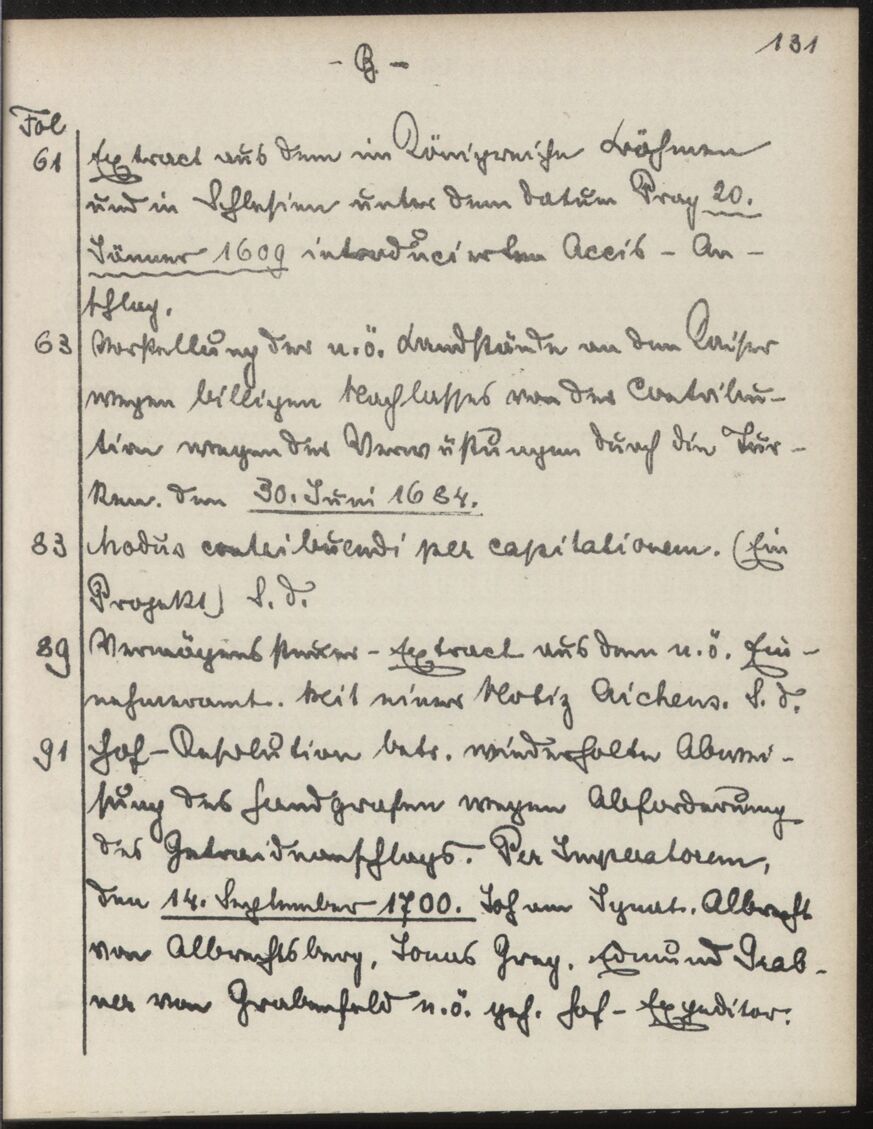 131
- B. -
Fol
61 Extract aus dem im Königreiche Böhmen
und in Schlesien unter dem Datum Prag 20.
Jänner 1609 introducierten Accis - An -
schlag.
63 Vorstellung der n.ö. Landstände an den Kaiser
wegen billigen Nachlasses von der Contribu-
tion wegen der Verwüstungen durch die Tür -
ken. den 30. Juni 1684.
83 Modus contribuendi per capitationem. (Ein
Projekt) S. d.
89 Vermögenssteuer - Extract aus dem n.ö. Ein -
nehmeramt. Mit einer Notiz Aichens. S. d.
91 Hof - Resolution betr. wiederholte Abwei -
sung des Landgrafen wegen Abforderung
des Getraideanschlags. Per Imperatorem,
den 14. September 1700. Johann Ignat. Albrecht
von Albrechtsberg, Jonas Greg. Edmund Grab -
ner von Grabenfeld n.ö. geh. Hof - Expeditor.